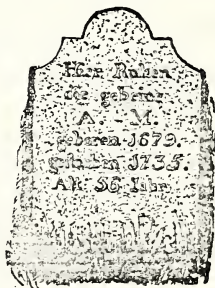 Hier Ruhen
die gebeine
A. - M.
geboren 1679.
gestorben 1735.
Alt 56 Iahr